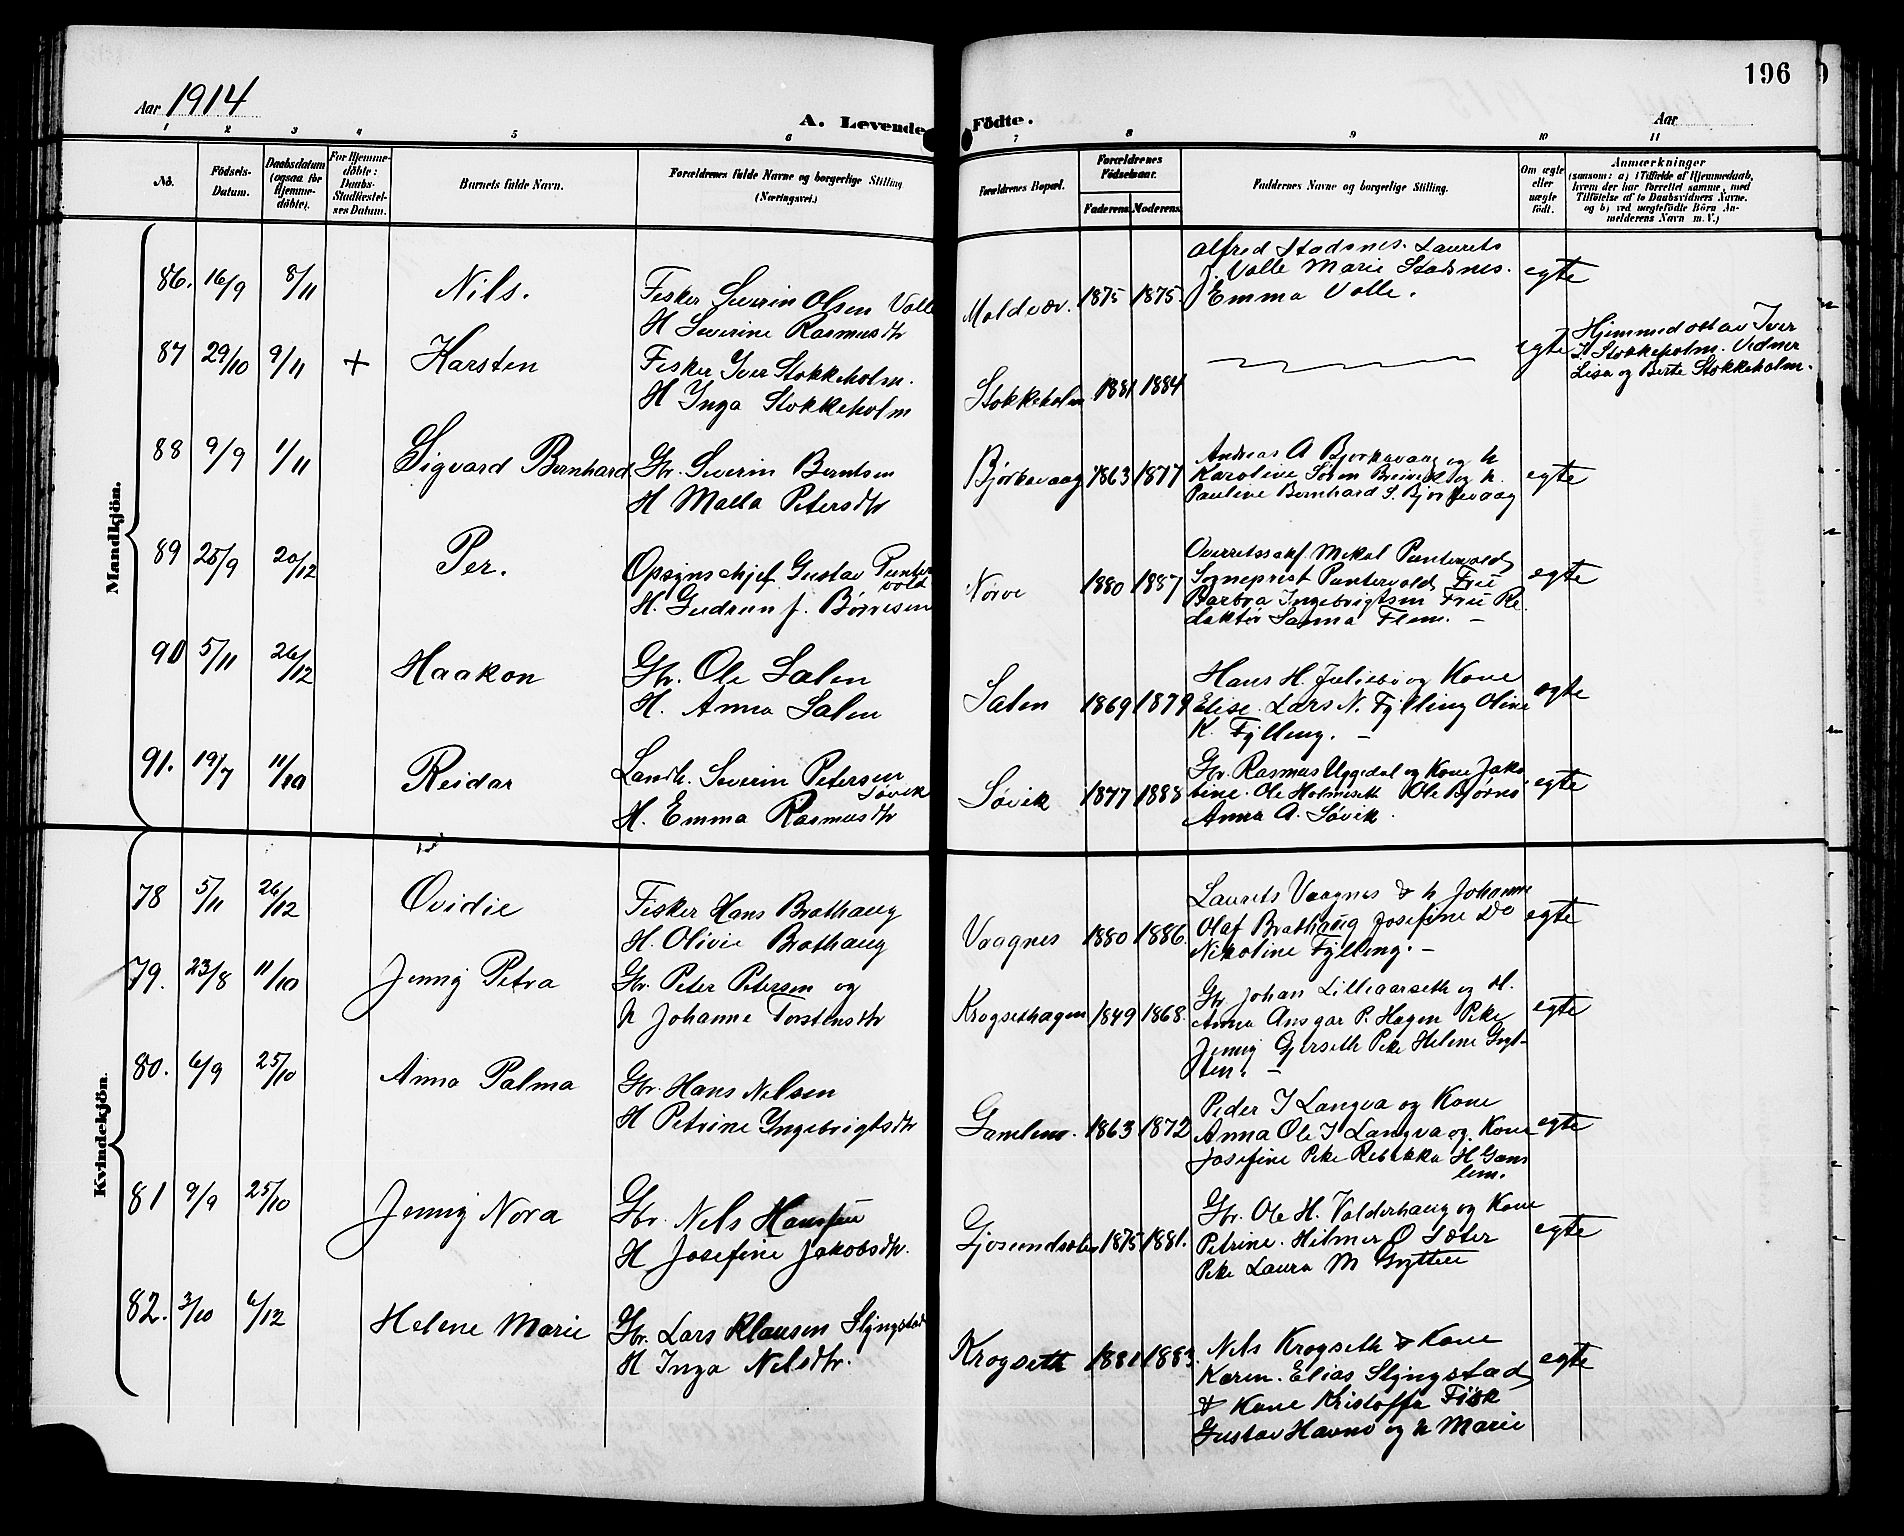 196
Aar 1914
A. Levende Födte.
Aar
1 2 3 4 5 6 7 8 9 10 11
No.
Födsels-Datum.
Daabsdatum (ogsaa for Hjemme-döbte).
For Hjemme-döbte: Daabs-Stadfæstel-ses Datum.
Barnets fulde Navn.
Forældrenes fulde Navne og borgerlige Stilling (Næringsvei.)
Forældrenes Bopæl.
Forældrenes Födselsaar.
Faderens. Moderens.
Faddernes Navne og borgerlige Stilling.
Om ægte eller uægte födt.
Anmærkninger
(saasom: a) i Tilfælde af Hjemmedaab,
hvem der har forrettet samme, med
Tilföielse af to Daabsvidners Navne.
og b) ved uægtefödte Börn An-
melderens Navn m. V.)
Mandkjön.
86. 16/9 8/11 Nils. Fisker Severin Olsen Valle
H Severine Rasmusdtr
Moldvær. 1875 1875.
Alfred Stadsnes. Laurits
J. Valle Marie Stadsnes.
Emma Valle.
egte
87 29/10 9/11 + Karsten Fisker Iver Stokkeholm.
H Inga Stokkeholm
Stokkeholm 1881 1884
egte
Hjemmedöbt av Iver
I. Stokkeholm. Vidner
Lisa og Berte Stokkeholm.
88 9/9 1/11 Sigvard Bernhard Gbr. Severin Berntsen
H Malla Petersdtr
Bjørkavaag 1863 1877
Andreas A Bjørkavaag og h
Karoline Søren Breivik og h.
Pauline Bernhard S. Bjørkevaag
egte
89 25/9 20/12 Per. Opsynschef Gustav Puntervold
H. Gudrun f. Børresen
Nørve 1880 1887
Overretssakf. Mikal Puntervold
Sogneprest Puntervold Fru
Barbra Ingebrigtsen Fru Re.
daktør Sanna Flem. -
egte
90 5/11 26/12 Haakon Gbr. Ole Salen
H. Anna Salen
Salen 1869 1879
Hans H. Juliebø og Kone
Elise. Lars N. Fylling Oline
K. Fylling. -
egte
91. 19/7 11/10 Reidar Landh. Severin Petersen Søvik
H. Emma Rasmusdtr
Søvik 1877 1888
Gbr. Rasmus Uggedal og Kone Jako
bine. Ole Holmeseth Ole Bjørnø
Anna A. Søvik.
egte
Kvindekjön.
78 5/11 26/12 Ovidie Fisker Hans Brathaug
H. Olivie Brathaug
Vaagnes 1880 1886.
Laurits Vaagnes & h Johanne
Olaf Brathaug Josefine Do
Nikoline Fylling. -
egte
79. 23/8 11/10 Jenny Petra Gbr. Peter Petersen og
h Johanne Torstensdtr
Krogsethagen 1849 1868.
Gbr Johan Lillaarseth og H.
Anna Ansgar P. Hagen Pike
Jenny Gjerseth Pike Helene Gryt-
ten. -
egte
80. 6/9 25/10 Anna Palma Gbr. Hans Nilsen
H Petrine Yngebrigtsdtr
Gamlem. 1863 1872
Peder I Langva og Kone
Anna Ole I Langva og Kone
Josefine Pike Rebekka H Gam
lem.
egte
81 9/9 25/10 Jenny Nora Gbr. Nils Hansen
H Josefine Jakobsdtr.
1875 1881.
Gbr. Ole H. Valderhaug og Kone
Petrine. Hilmer O Sæter
Pike Laura M Grytten
egte
82. 3/10 6/12 Helene Marie Gbr. Lars Klausen Slyngstad
H Inga Nilsdtr.
Krogseth 1881 1883.
Nils Krogseth & Kone
Karen. Elias Slyngstad
& Kone Kristoffa Fisk
Gustav Havnø og h Marie
egte